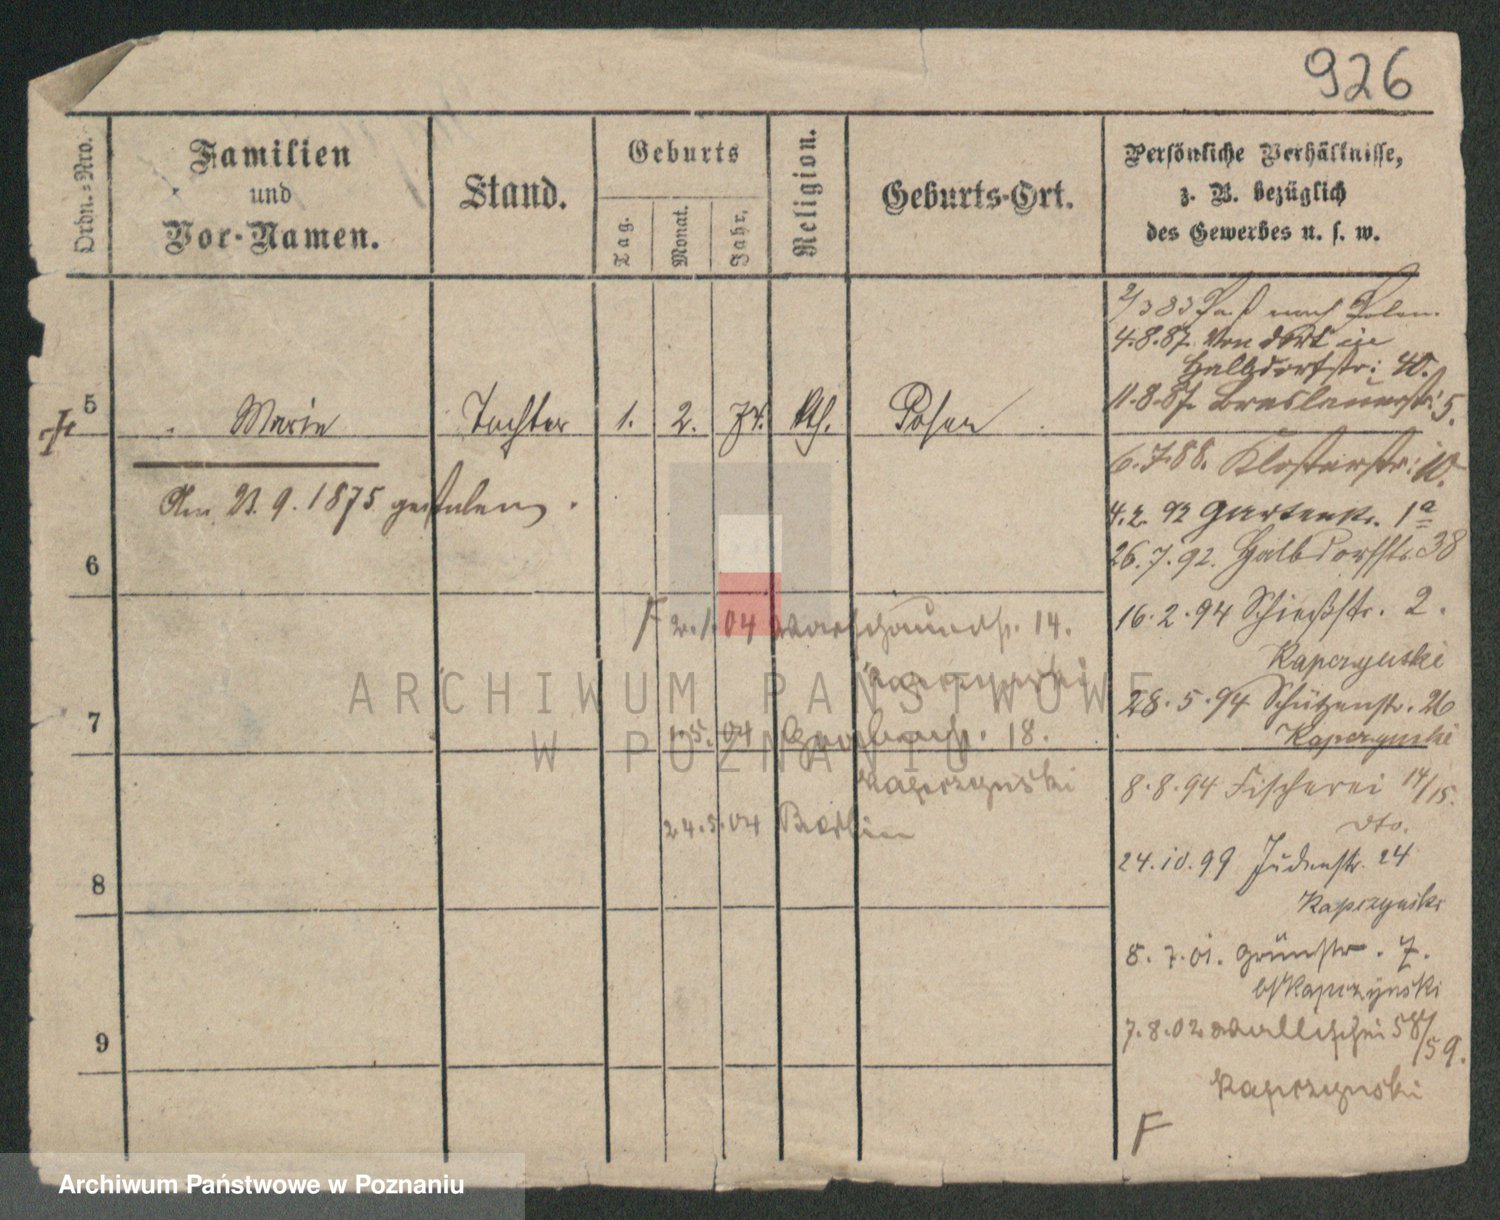 926
Ordn.-Nro.
Familien
und
Vor-Namen.
Stand.
Geburts
Tag.
Monat.
Jahr.
Religion.
Geburts-Ort.
Persönliche Verhältnisse,
z. B. bezüglich
des Gewerbes u. s. w.
2/3 83 Paß nach Polen.
4.8.87. Von dort in
Halbdorfstr: 40.
11.8.87. Breslauerstr: 5.
5 Marie Tochter 1. 2. 74. kth. Posen
6.7.88. Klosterstr: 10.
Am 23.9.1875 gestorben.
4.2.92 Gartenstr. 1a
26.7.92. Halbdorfstr. 38
6
16.2.94 Schießstr. 2.
Kaperzynski
F 2.1.04 Warschauerstr. 14.
Kaperzynski
28.5.94 Schützenstr. 26
Kaperzynski
7
1.5.04 18.
Kaperzynski
24.5.04 Berlin
8.8.94 Fischerei 14/15.
dto.
24.10.99 Judenstr. 24
Kaperzynski
8
8.7.01. Grünstr. 7.
Kaperzynski
7.8.02 Wallischei 58/59.
Kaperzynski
9
F
ARCHIWUM PAŃSTWOWE
W POZNANIU
Archiwum Państwowe w Poznaniu